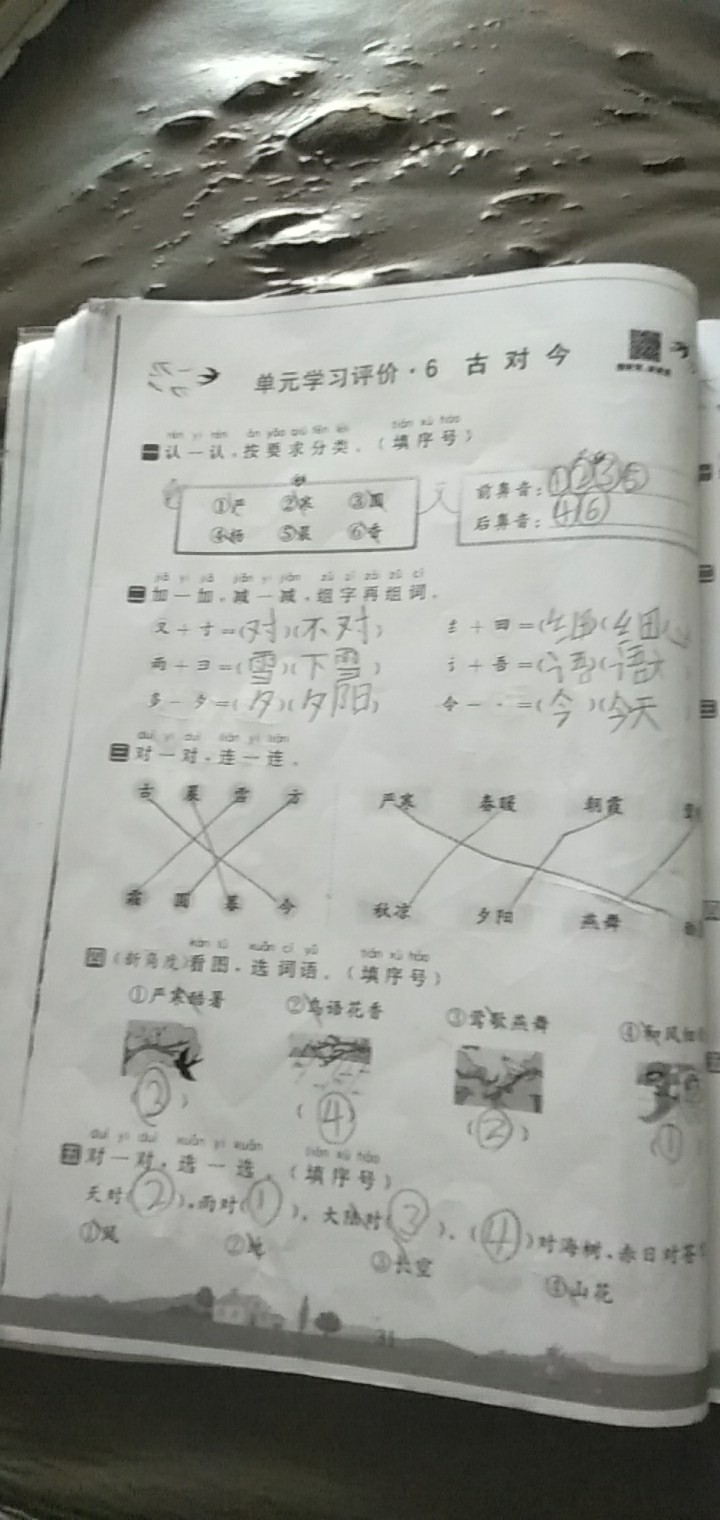 单元学习评价·6 古对今
rèn yi rèn àn yāo qiú fēn lèi tián xù hào
一 认一认,按要求分类。(填序号)
①严 ②寒 ③圆
④杨 ⑤晨 ⑥香
前鼻音:①②③⑤
后鼻音:④⑥
jiā yi jiā jiǎn yi jiǎn zǔ zì zài zǔ cí
二 加一加,减一减,组字再组词。
又+寸=(对)(不对) 纟+田=(细)(细心)
雨+彐=(雪)(下雪) 讠+吾=(语)(语文)
多-夕=(夕)(夕阳) 令-丶=(今)(今天)
duì yi duì lián yi lián
三 对一对,连一连。
古 晨 雪 方 严寒 春暖 朝霞
霜 圆 暮 今 秋凉 夕阳 燕舞
kàn tú xuǎn cí yǔ tián xù hào
四 (新角度)看图,选词语。(填序号)
①严寒酷暑 ②鸟语花香 ③莺歌燕舞 ④和风细
(④) (②) (①)
duì yi duì xuǎn yi xuǎn tián xù hào
五 对一对,选一选。(填序号)
天对(②),雨对(①),大陆对(③),(④)对海树,赤日对苍
①风 ②地 ③长空 ④山花
31